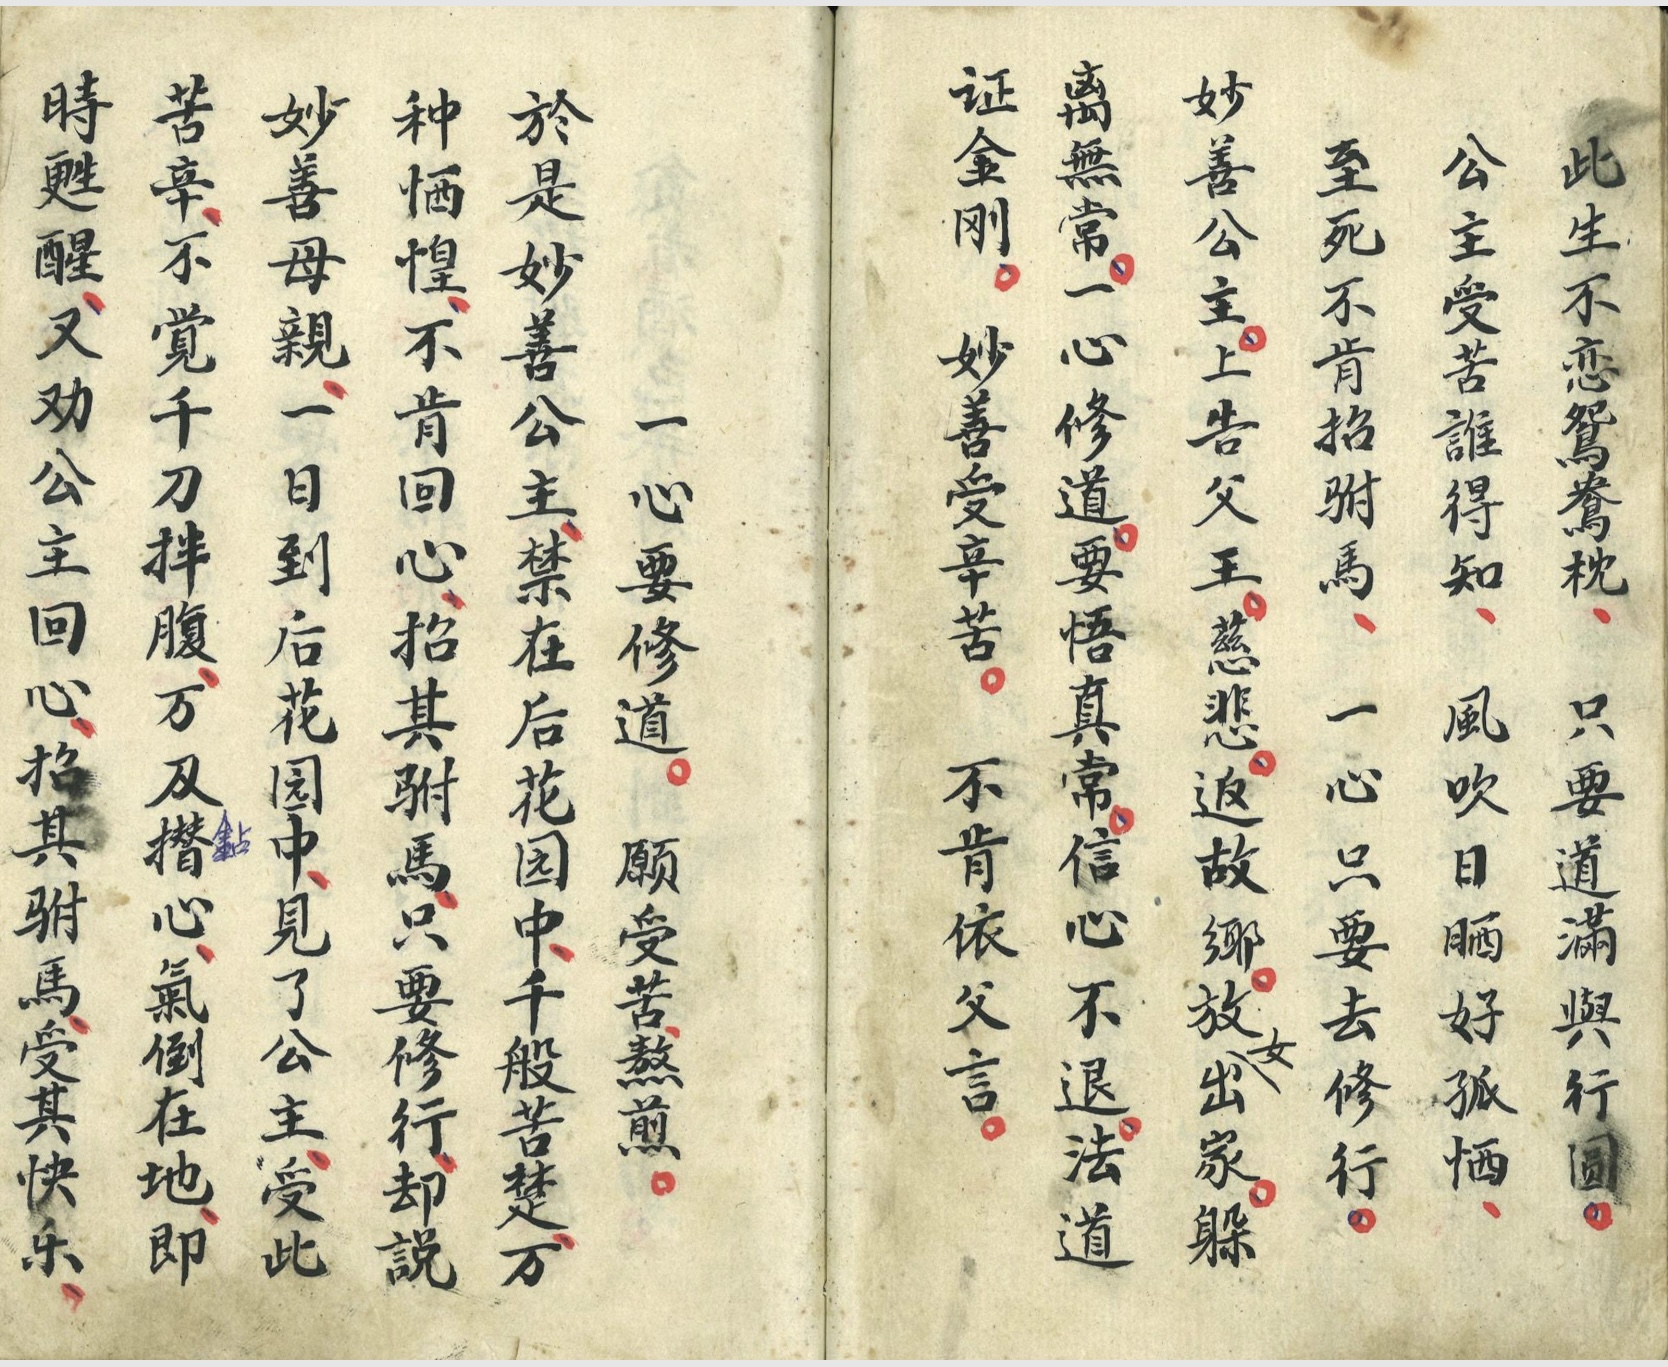 此生不恋鸳鸯枕、　只要道滿與行圆。
公主受苦誰得知、　風吹日晒好孤恓、
至死不肯招駙馬、　一心只要去修行。
妙善公主。上告父王。慈悲。返故鄉。放女出家。躲
离無常。一心修道。要悟真常。信心不退。法道
证金刚。　妙善受辛苦。　不肯依父言。
一心要修道。　願受苦、熬煎。
於是妙善公主、禁在后花园中、千般苦楚、万
种恓惶、不肯回心、招其駙馬、只要修行、却説
妙善母親、一日到后花园中、見了公主、受此
苦辛、不覚千刀拌腹、万及撍鉆心、氣倒在地、即
時甦醒、又劝公主回心、招其駙馬、受其快乐、